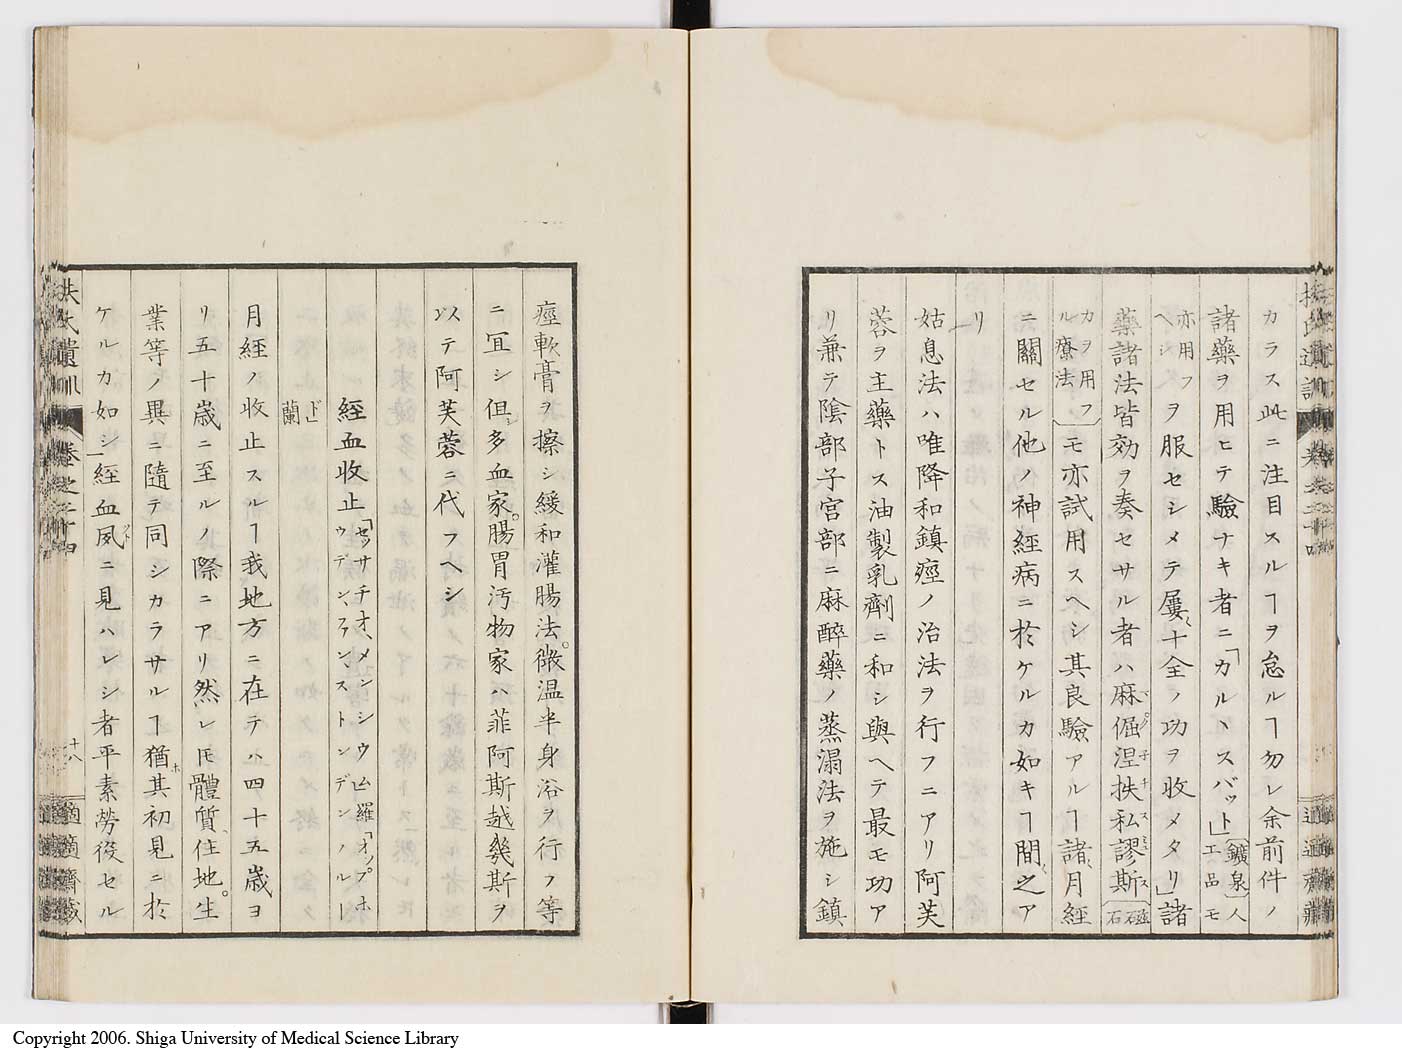 カラス此ニ注目スルヿヲ怠ルヿ勿レ余前件ノ
諸藥ヲ用ヒテ驗ナキ者ニ「カルヽスバット」〔鑛泉〕人工品モ
亦用フヘシヲ服セシメテ屢〻十全ノ功ヲ收メタリ」諸
藥諸法皆効ヲ奏セサル者ハ麻倔涅扶私謬斯〔磁石
カヲ用フル療法〕モ亦試用スヘシ其良驗アルヿ諸〻月經
ニ關セル他ノ神經病ニ於ケルカ如キヿ間〻之ア
リ
姑息法ハ唯降和鎮痙ノ治法ヲ行フニアリ阿芙
蓉ヲ主藥トス油製乳劑ニ和シ與ヘテ最モ功ア
リ兼テ陰部子宮部ニ麻醉藥ノ蒸溻法ヲ施シ鎮
痙軟膏ヲ擦シ緩和灌腸法。微温半身浴ヲ行フ等
ニ冝シ但シ多血家。腸胃汚物家ハ菲阿斯越幾斯ヲ
以テ阿芙蓉ニ代フヘシ
經血收止「セッサチオ、メンシウム」羅「オップホウデン、ファン、ストンデン」
蘭
月經ノ收止スルヿ我地方ニ在テハ四十五歳ヨ
リ五十歳ニ至ルノ際ニアリ然レ𪜈體質、住地。生
業等ノ異ニ隨テ同シカラサルヿ猶ホ其初見ニ於
ケルカ如シ」經血夙ニ見ハレシ者平素勞役セル
扶氏遺訓 卷之二十四 十八 適適齋藏